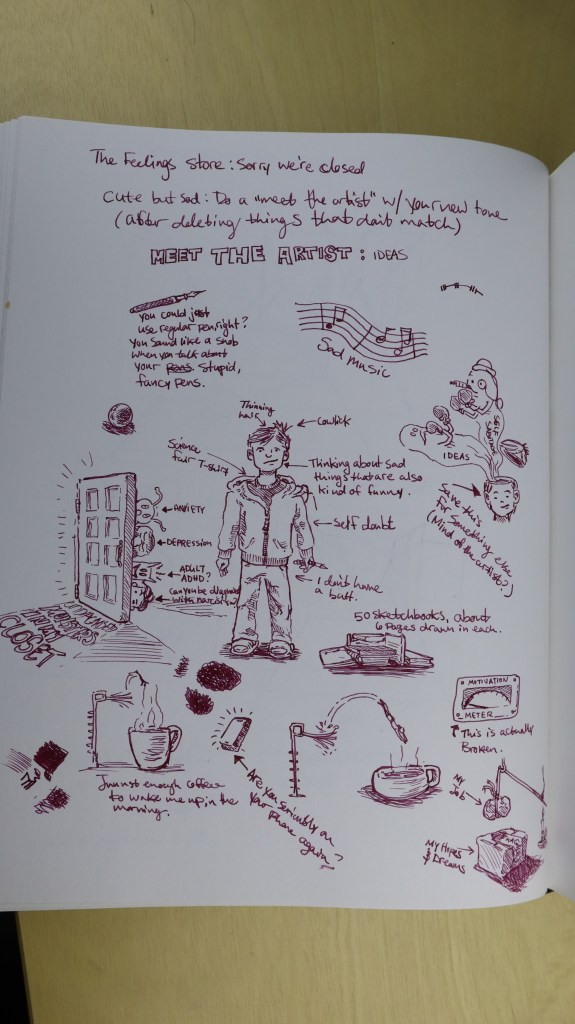 The Feelings Store: Sorry we're closed
Cute but sad: Do a "meet the artist" w/ your new tone
(after deleting things that don't match)
MEET THE ARTIST: IDEAS
you could just
use regular pen, right?
You sound like a snob
when you talk about
your pens. Stupid,
fancy pens.
Sad Music
Thinning
hair
Cowlick
Science
fair T-shirt
Thinking about sad
things that are also
kind of funny.
IDEAS
SELF
Save this
for something else
(Mind of the artist?)
ANXIETY
DEPRESSION
ADULT
ADHD?
Can you be diagnosed
with narcissism?
Self doubt
I don't have
a butt.
CLOSET
50 sketchbooks, about
6 pages drawn in each.
MOTIVATION
METER
This is actually
Broken.
Just enough coffee
to wake me up in the
morning.
Are you seriously on
your phone again?
My
Job
My Hopes
& Dreams